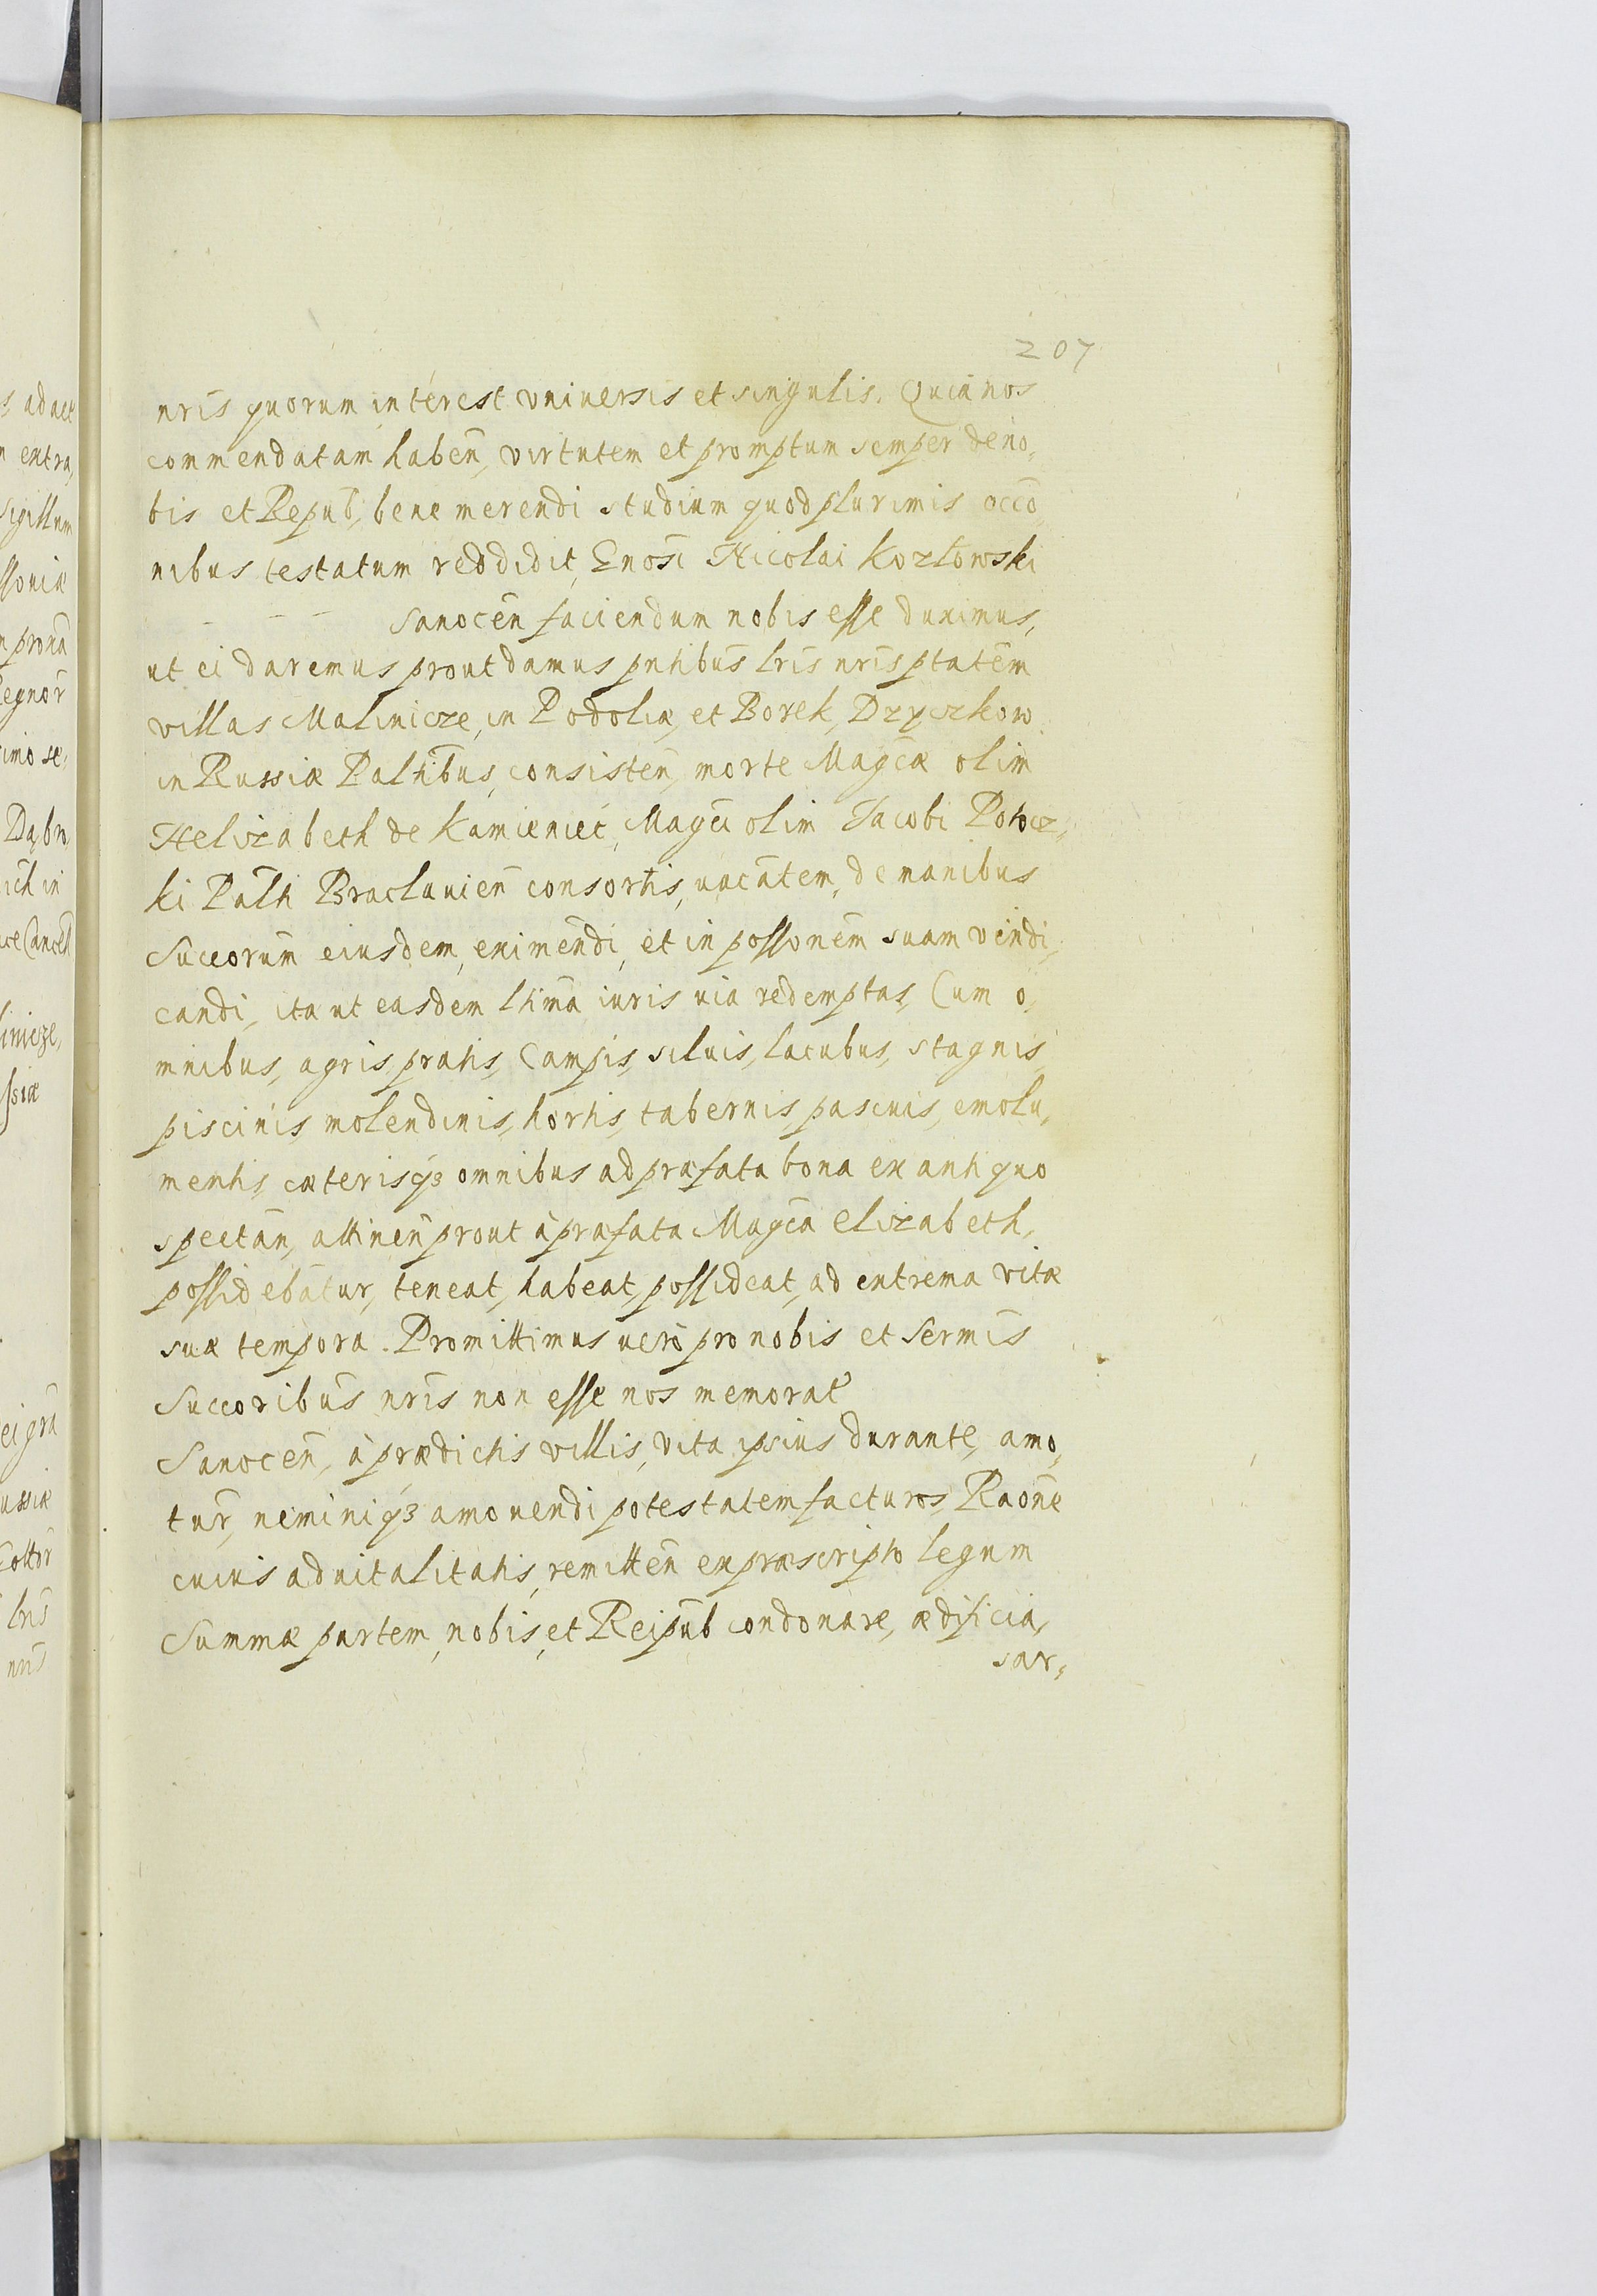 207
nris quorum interest vniversis et singulis. Quia nos
commendatam haben̄, virtutem et promptum semper de no,
bis et Repub, bene merendi studium quod plurimis occo
nibus testatum reddidit, Gnosi Nicolai Kozłowski
Sanocen̄ faciendum nobis esse duximus,
ut ei daremus prout damus pntibus lris nris ptatem
villas Malinicze, in Podoliæ, et Borek, Dryczkow
in Russiæ Paltibus, consisten̄, morte Magcæ olim
Helizabeth de Kamieniec, Magci olim Jacobi Potocz,
ki Palti Braclauien̄ consortis, uacātem, de manibus
Succorum eiusdem, eximendi, et in possonem suam vindi,
candi, ita ut easdem lt̄ima iuris uia redemptas, Cum o,
mnibus, agris, pratis, Campis, siluis, lacubus, stagnis,
piscinis molendinis, hortis, tabernis, pascuis, emolu,
mentis, cæterisq3 omnibus ad præfata bona ex antiquo
spectān, attinen̄ prout à præfata Magca Elizabeth,
possidebātur, teneat, habeat, possideat, ad extrema vitæ
suæ tempora. Promittimus uerò pro nobis et Sermis
Succoribus nris non esse nos memorat
Sanocen̄, à prædictis villis, vita ipsius durante, amo,
tur̄, neminiq3 amouendi potestatem facturos, Raone
cuius aduitalitatis, remitten̄ ex præscripto legum
Summæ partem, nobis, et Reipub condonare, ædificia,
sar,